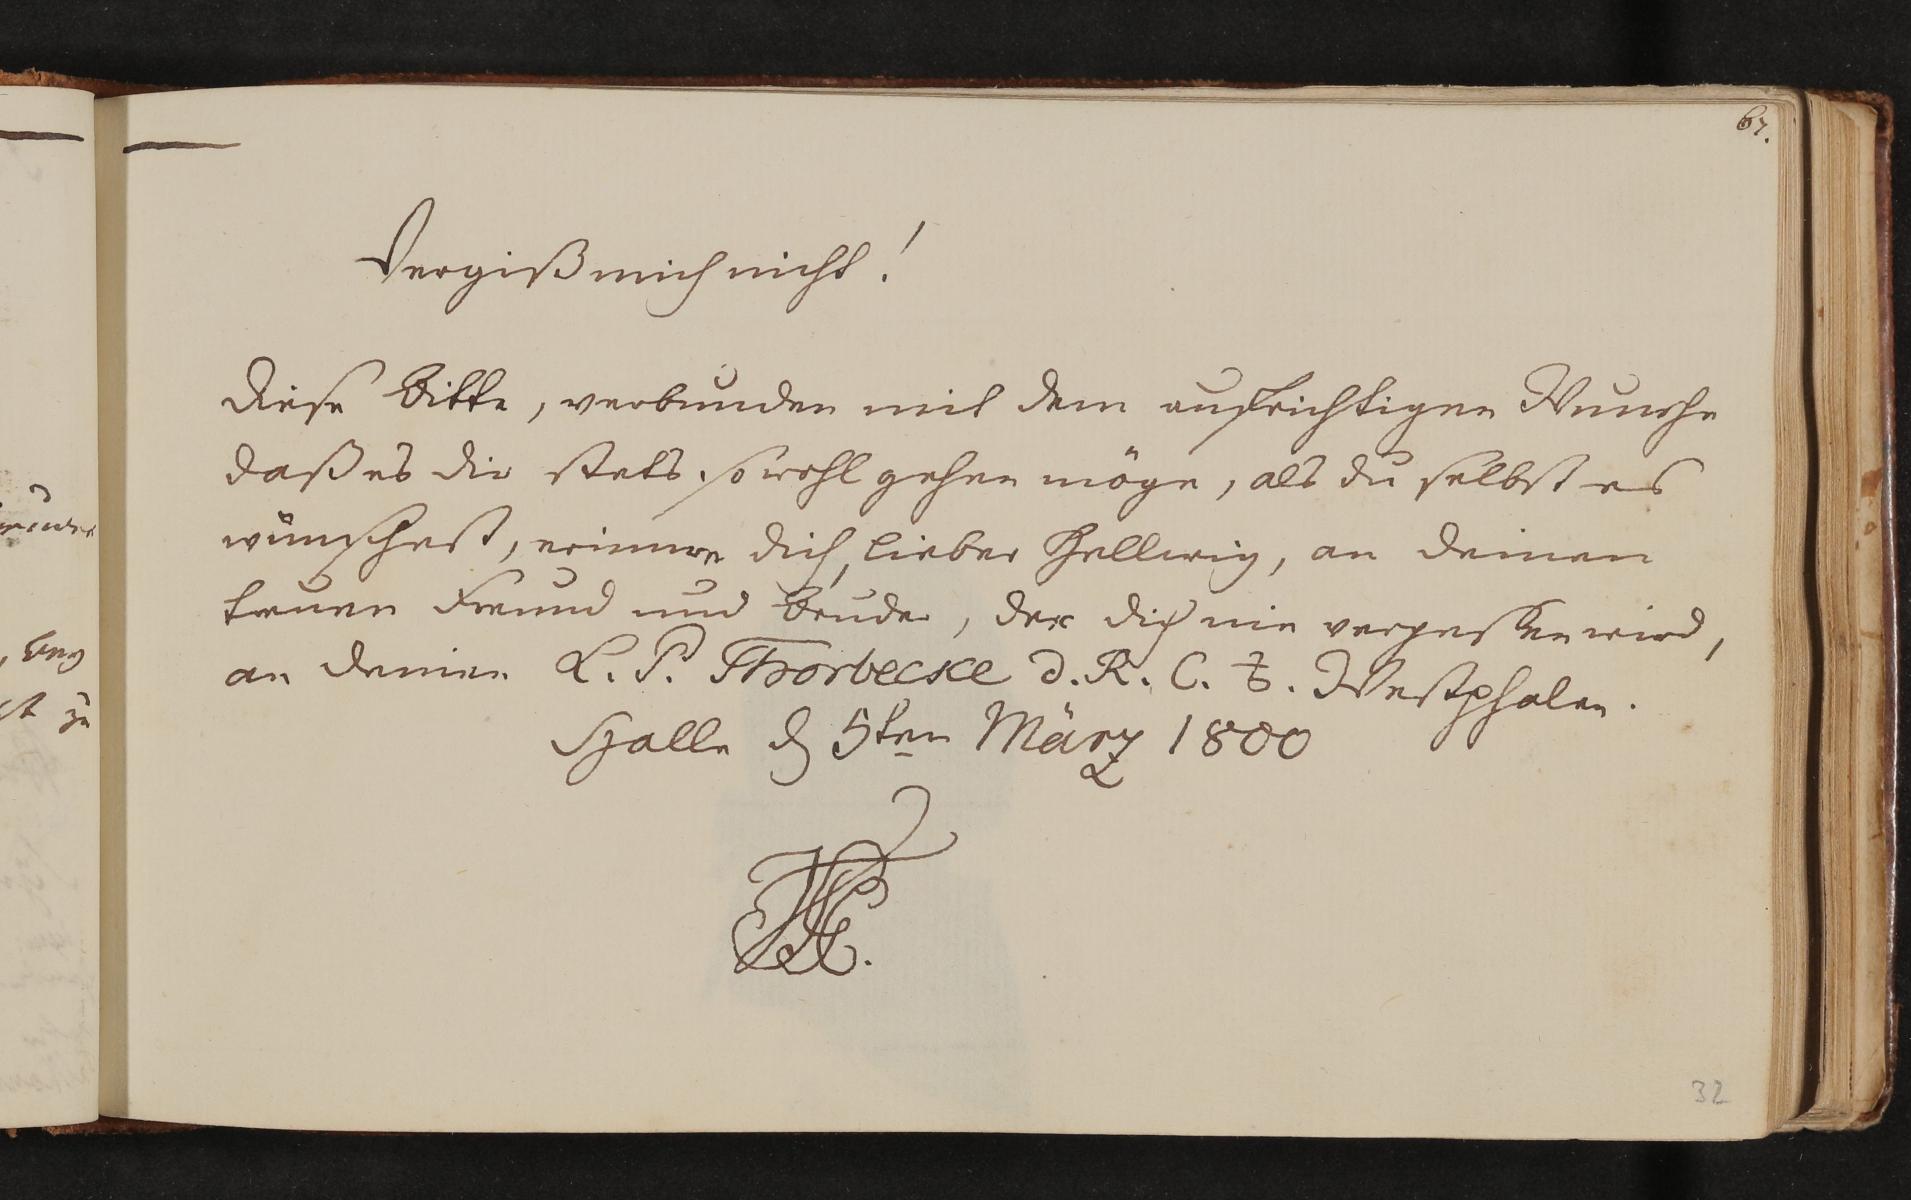 67.
Vergiß mich nicht!
Diese Bitte, verbunden mit dem aufrichtigen Wunsche
daß es dir stets so wohl gehen möge, als du selbst es
wünschest, erinnre dich, lieber Hellwig, an deinen
treuen Freund und Bruder, der dich nie vergessen wird,
an deinen L. P. Thorbecke d. R. C. a. Westphalen.
Halle d 5ten März 1800
32